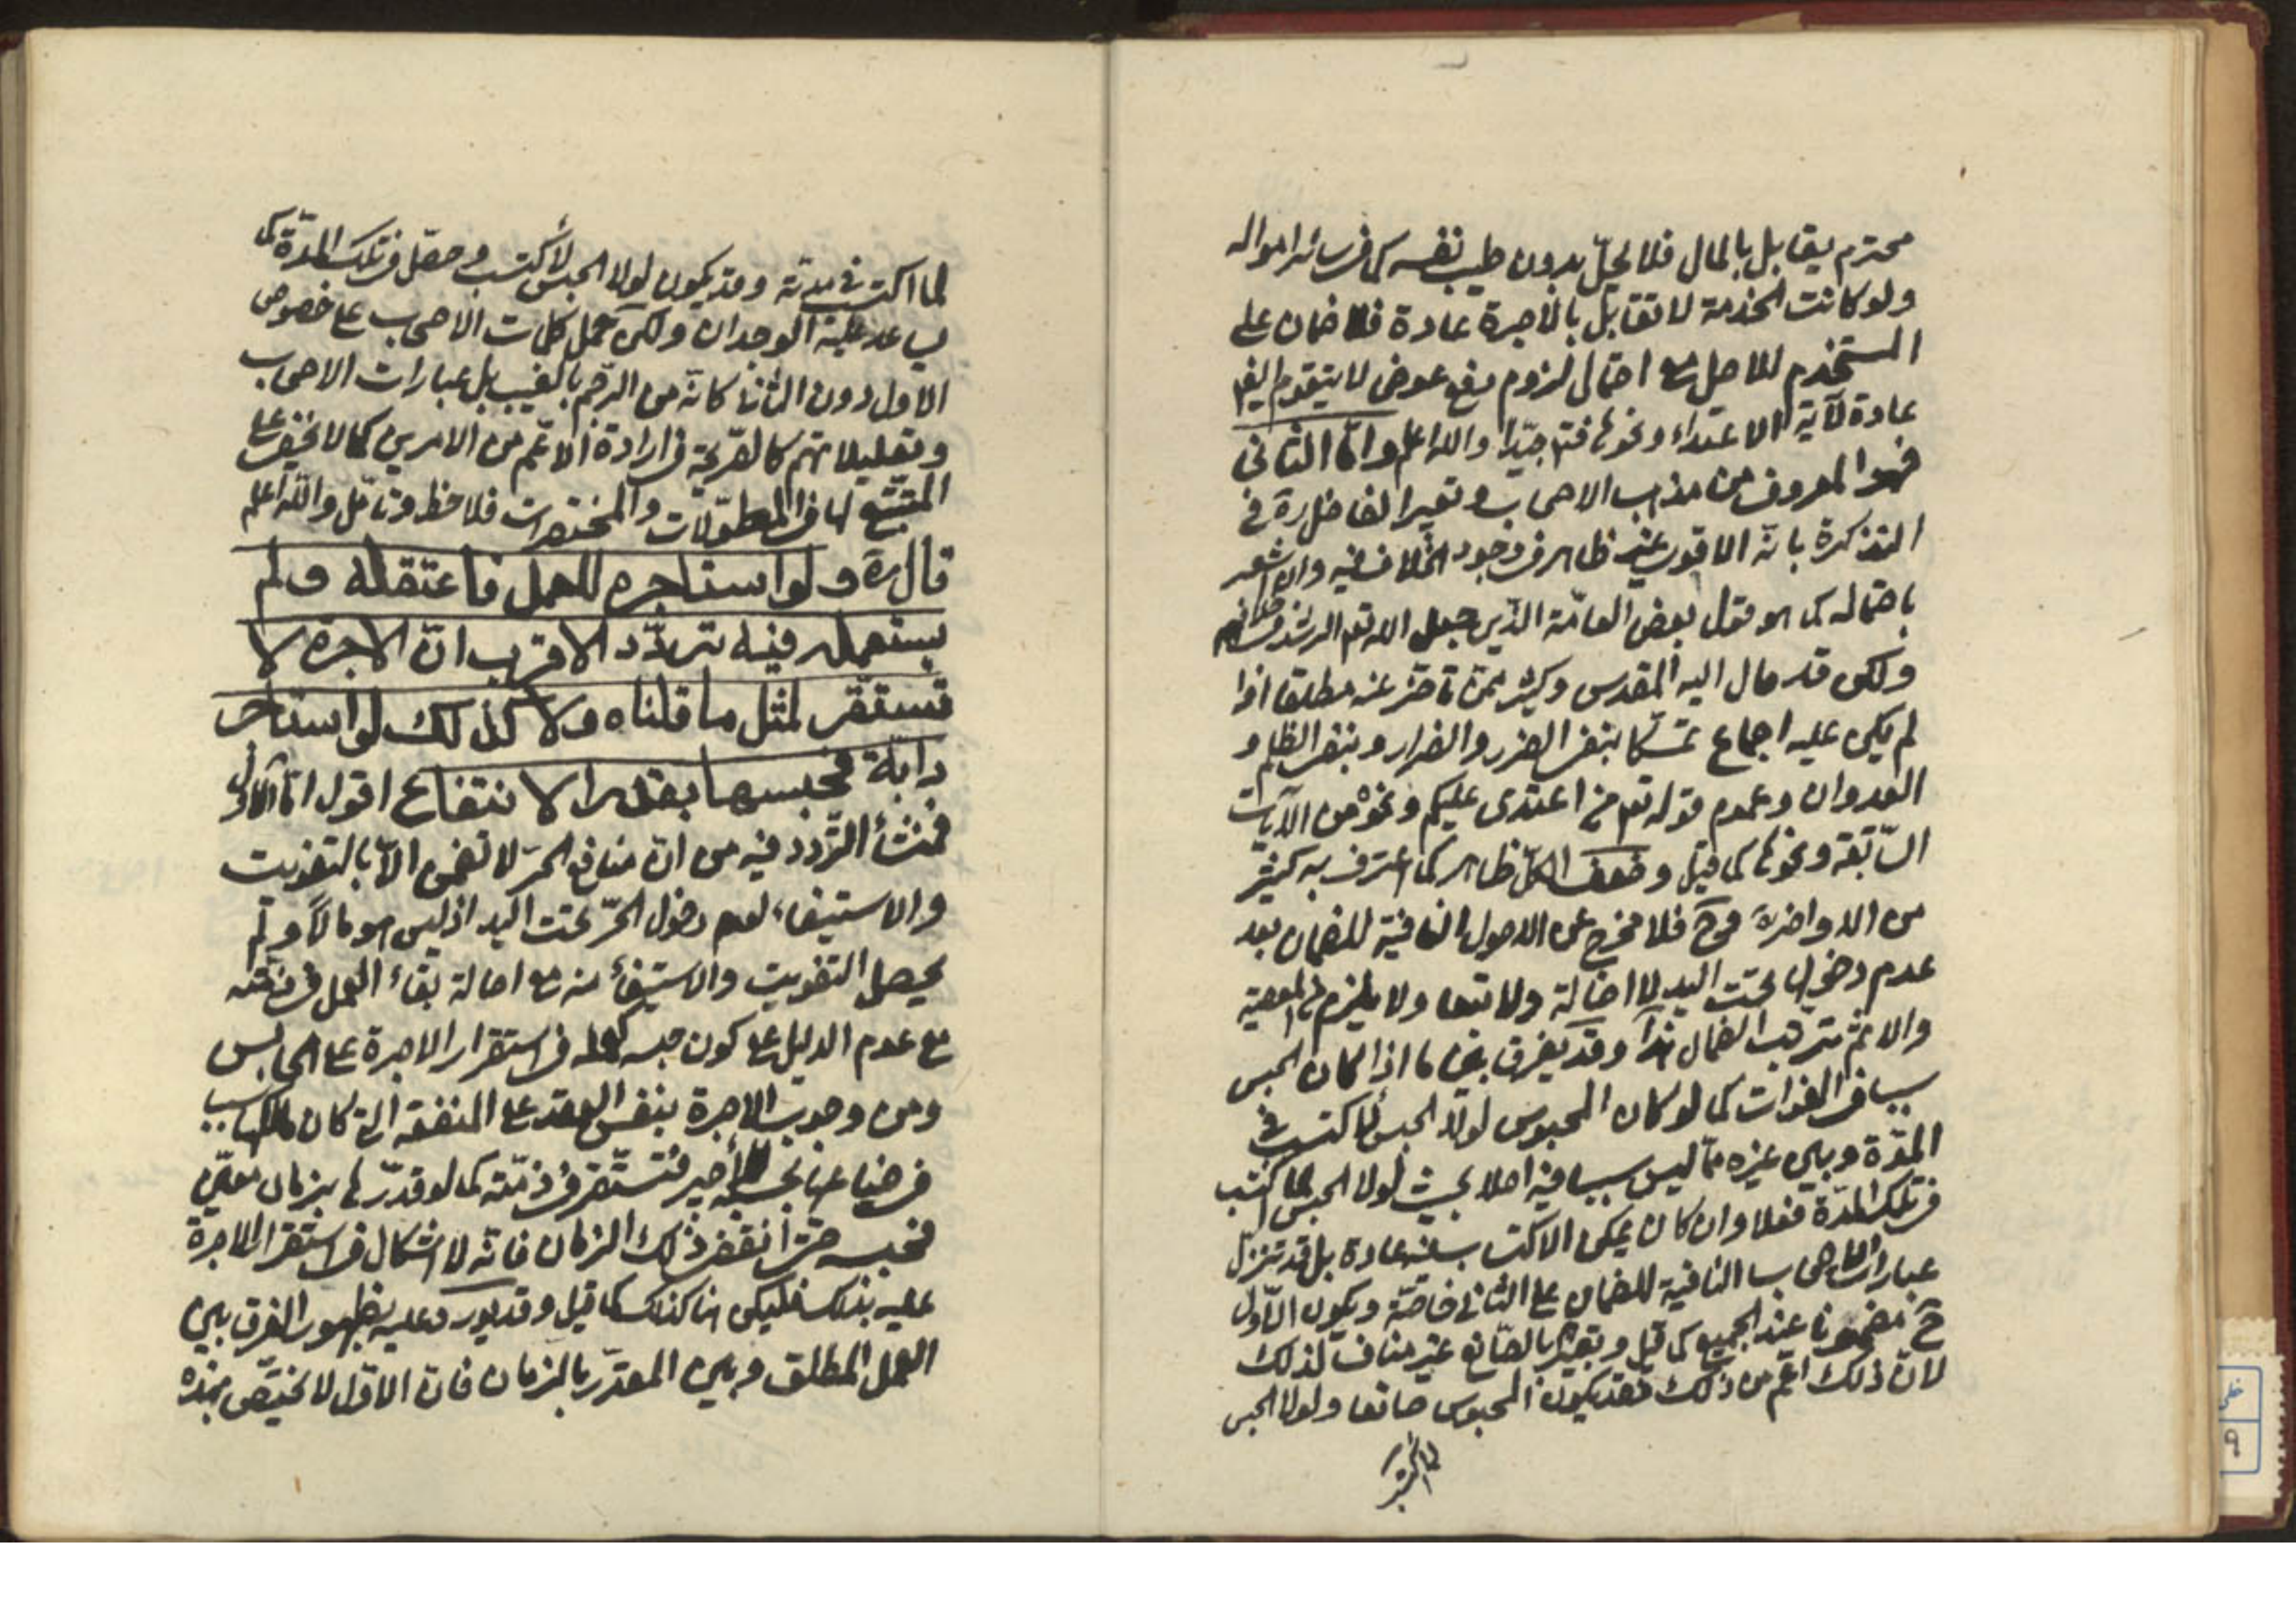 محترم يقابل بالمال فلا يحلّ بدون طيب نفسه كما في سائر امواله
ولو كانت الخدمة لا تقابل بالاجرة عادة فلا ضمان على
المستخدم للاصل مع احتمال لزوم دفع عوض لا يتقوم ايضا
عادة لآية الاعتداء ونحوها فتا جيّدا والله اعلم وامّا الثاني
فهو المعروف من مذهب الاصحاب وتعبير الفاضل ره في
التذكرة بانّه الاقوى عنده ظاهر في وجود الخلاف فيه وان اشعر
باحتماله كما هو قول بعض العامّة الذين جعل الله تعم الرشد في خلافهم
ولكن قد مال اليه المقدس وكثير ممن تاخر عنه مطلقا اذا
لم يكن عليه اجماع تمسّكا بنفى الضرر والضرار وبنفى الظلم و
العدوان وعموم قوله تعم فمن اعتدى عليكم ونحوه من الآيات
السّابقة ونحوها كما قيل وضعف الكل ظاهر كما اعترف به كثير
من الاواخر فح فلا مخرج عن الاصول النافية للضمان بعد
عدم دخولها تحت اليد لا اصالة ولا تبعا ولا يلزم من المعصية
والاثم ترتب الضمان ابدا وقد يفرق بين ما اذا كان الحبس
سببا في الفوات كما لو كان المحبوس لولا الحبس لاكتسب في
المدّة وبين غيره ممّا ليس سببا فيه اصلا بحيث لولا الحبس لما اكتسب
في تلك المدّة فعلا وان كان يمكن الاكتساب منه عادة بل قد تنزل
عبارات الاصحاب النافية للضمان على الثاني خاصّة ويكون الاوّل
ح مضمونا عند الجميع كما قيل وتعبيرهم بالصّانع غير مناف لذلك
لانّ ذلك اعمّ من ذلك فقد يكون المحبوس صانعا ولولا الحبس
لما اكتسب
لما اكتسب في مدته وقد يكون لولا الحبس لأكتسب وحصّل في تلك المدّة كما
يساعد عليه الوجدان ولكن حمل كلمات الاصحاب على خصوص
الاول دون الثاني كانّه من الرجم بالغيب بل عبارات الاصحاب
وتعليلاتهم كالصّريحة في ارادة الاعّم من الامرين كما لا يخفى على
المتتبّع لها في المطوّلات والمختصرات فلاحظ وتامّل والله اعلم
قال ره ولو استاجره للعمل فاعتقله ولم
يستعمله فيه تردّد الاقرب انّ الاجرة لا
تستقر لمثل ما قلناه ولا كذلك لو استاجر
دابّة فحبسها بقدر الانتفاع اقول امّا الاوّل
فمنشأ التّردد فيه من انّ منافع الحرّ لا تضمن الاّ بالتفويت
والاستيفاء لعدم دخول الحرّ تحت اليد اذ ليس هو مالاً ولم
يحصل التفويت والاستيفاء منه مع اصالة بقاء العمل في ذمّته
مع عدم الدليل على كون حبسه كعمله في استقرار الاجرة على الحابس
ومن وجوب الاجرة بنفس العقد على المنفعة التي كان هلاكها بسبب
في ضياعها بحبسه الأجير فتستّقر في ذمّته كما لو قدّرها بزمان معيّن
فحبسه حتى انقضى ذلك الزمان فانّه لا اشكال في استقرار الاجرة
عليه بذلك فليكن هنا كذلك كما قيل وقد يورد عليه بظهور الفرق بين
العمل المطلق وبين المقدّر بالزمان فانّ الاوّل لا يختصّ بهذه